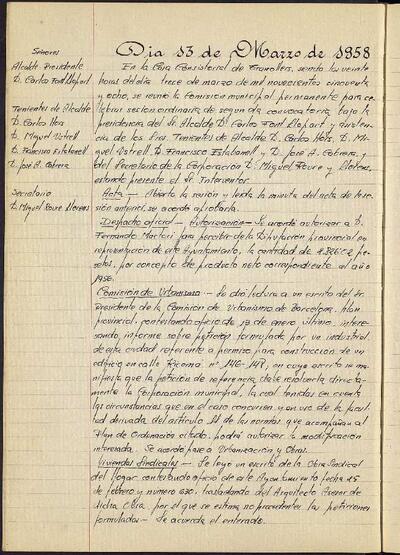 Señores
Alcalde Presidente
D. Carlos Font Llopart
Tenientes de Alcalde
D. Carlos Hors
D. Miguel Vetrell
D. Francisco Estabanell
D. José A. Cabrera
Secretario
D. Miguel Roure Llorens
Dia 13 de Marzo de 1958
En la Casa Consistorial de Granollers, siendo las veinte
horas del día trece de marzo de mil novecientos cincuenta
y ocho, se reunió la Comisión municipal permanente para ce-
lebrar sesión ordinaria de segunda convocatoria, bajo la
presidencia del Sr. Alcalde D. Carlos Font Llopart y asisten-
cia de los Sres. Tenientes de Alcalde D. Carlos Hors, D. Mi-
guel Vetrell, D. Francisco Estabanell y D. José A. Cabrera, y
del Secretario de la Corporación D. Miguel Roure y Llorens,
estando presente el Sr. Interventor.
Acta.- Abierta la sesión y leida la minuta del acta de la se-
sión anterior, se acordó aprobarla.
Despacho oficial - Autorización.- Se acordó autorizar a D.
Fernando Martori para percibir de la Diputación provincial en
representación de este Ayuntamiento, la cantidad de
pesetas, por concepto de producto neto correspondiente al año
1956.
Comisión de Urbanismo.- Se dió lectura a un escrito del Sr.
Presidente de la Comisión de Urbanismo de Barcelona, Plan
provincial, contestando oficio de 13 de enero último, intere-
sando, informe sobre petición formulada por un industrial
de esta ciudad referente a permiso para construcción de un
edificio en calle Ricomá nº 146-148, en cuyo escrito se ma-
nifiesta que la petición de referencia debe resolverla directa-
mente la Corporación municipal, la cual teniendo en cuenta
las circunstancias que en el caso concurren y en uso de la facul-
tad derivada del artículo 11 de las normas que acompañan al
Plan de Ordenación citado, podrá autorizar la modificación
interesada. Se acordó pase a Urbanización y Obras.
Viviendas Sindicales.- Se leyó un escrito de la Obra Sindical
del Hogar contestando oficio de este Ayuntamiento fecha 15
de febrero y número 630, trasladando del Arquitecto Asesor de
dicha Obra, por el que se estiman no procedentes las peticiones
formuladas.- Se acuerda el enterado.